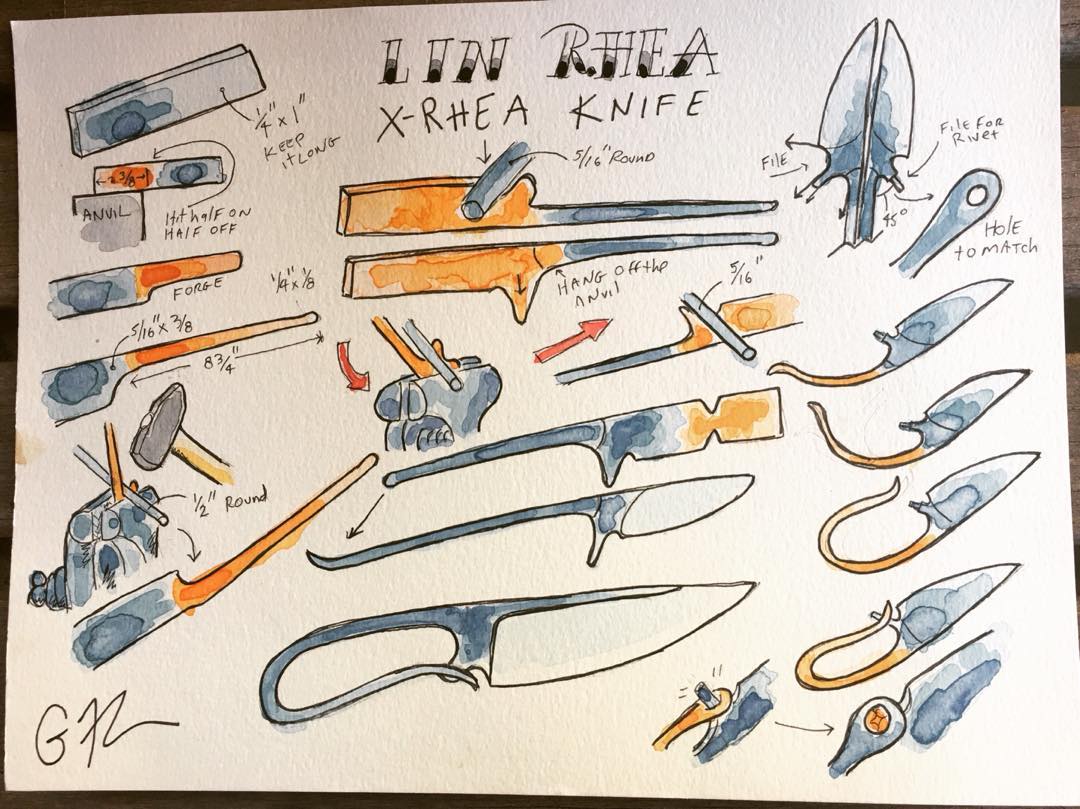 LIN RHEA
X-RHEA KNIFE
1/4" x 1"
KEEP
it LONG
2 3/8
ANVIL
Hit half ON
HALF OFF
FORGE
1/4 x 1/8
5/16" x 3/8
8 3/4"
1/2" Round
5/16" Round
HANG Off the
ANVIL
5/16"
FILE
File FOR
Rivet
45°
Hole
to MATCH